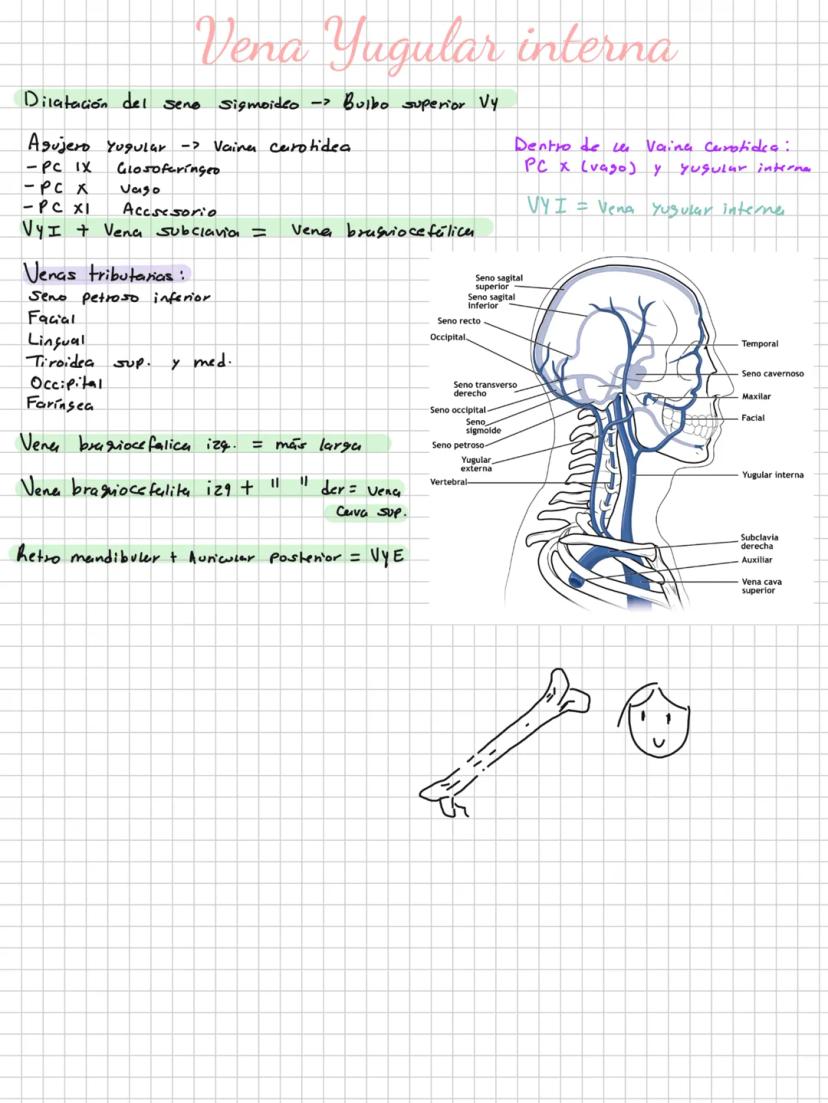 Vena Yugular interna
Dilatación del seno sigmoideo -> Bulbo superior VY
Agujero yugular -> Vaina carotidea
- PC IX Glosofaríngeo
- PC X Vago
- PC XI Accsesorio
VYI + Vena subclavia = Vena braquiocefálica
Dentro de la Vaina Carotidea:
PC X (vago) y yugular interna
VYI = Vena yugular interna
Venas tributarias:
Seno petroso inferior
Facial
Lingual
Tiroidea sup. y med.
Occipital
Faríngea
Vena braquiocefalica izq. = más larga
Vena braquiocefalita izq + " " der = vena
Cava sup.
Retro mandibular + Auricular posterior = VYE
Seno sagital
superior
Seno sagital
inferior
Seno recto
Occipital
Seno transverso
derecho
Seno occipital
Seno
sigmoide
Seno petroso
Yugular
externa
Vertebral
Temporal
Seno cavernoso
Maxilar
Facial
Yugular interna
Subclavia
derecha
Auxiliar
Vena cava
superior